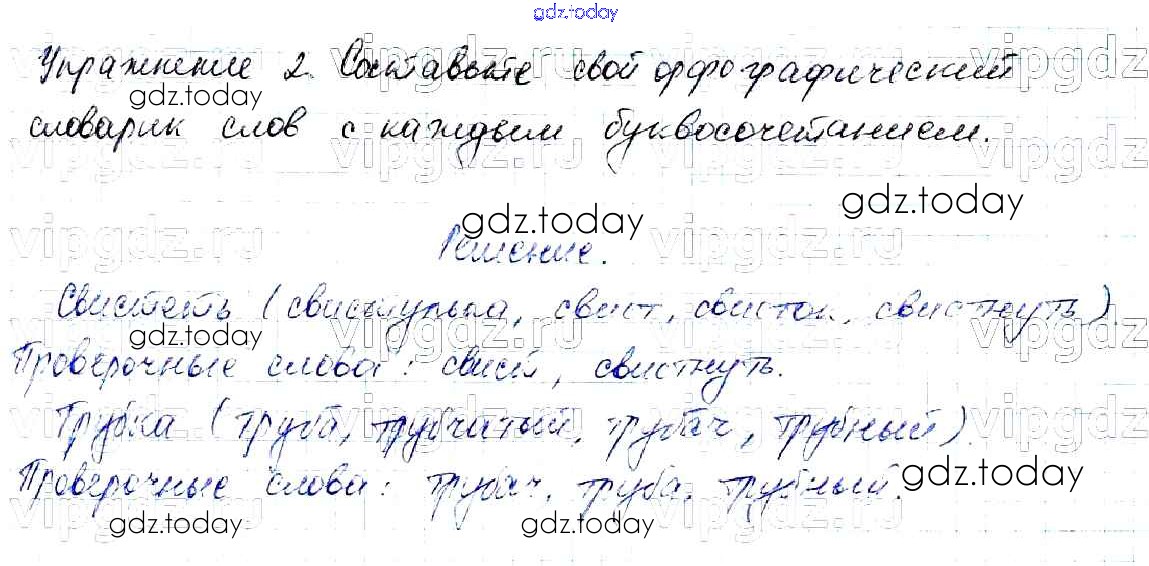 gdz.today
Упражнение 2. Составьте свой орфографический
словарик слов с каждым буквосочетанием.
Решение.
Свистеть (свистулька, свист, свисток, свистнуть).
Проверочные слова: свист, свистнуть.
Трубка (труба, трубчатый, трубач, трубный).
Проверочные слова: трубач, труба, трубный.